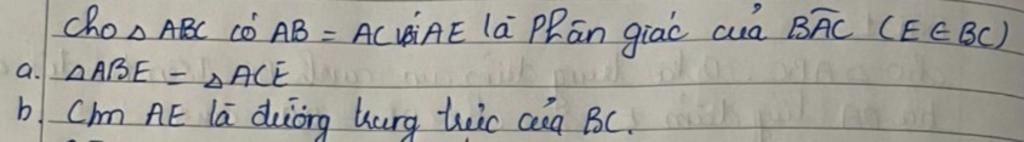 Cho △ ABC có AB = AC với AE là Phân giác của BAC (E ∈ BC)
a. △ABE = △ACE
b. Cm AE là đường trung trực của BC.